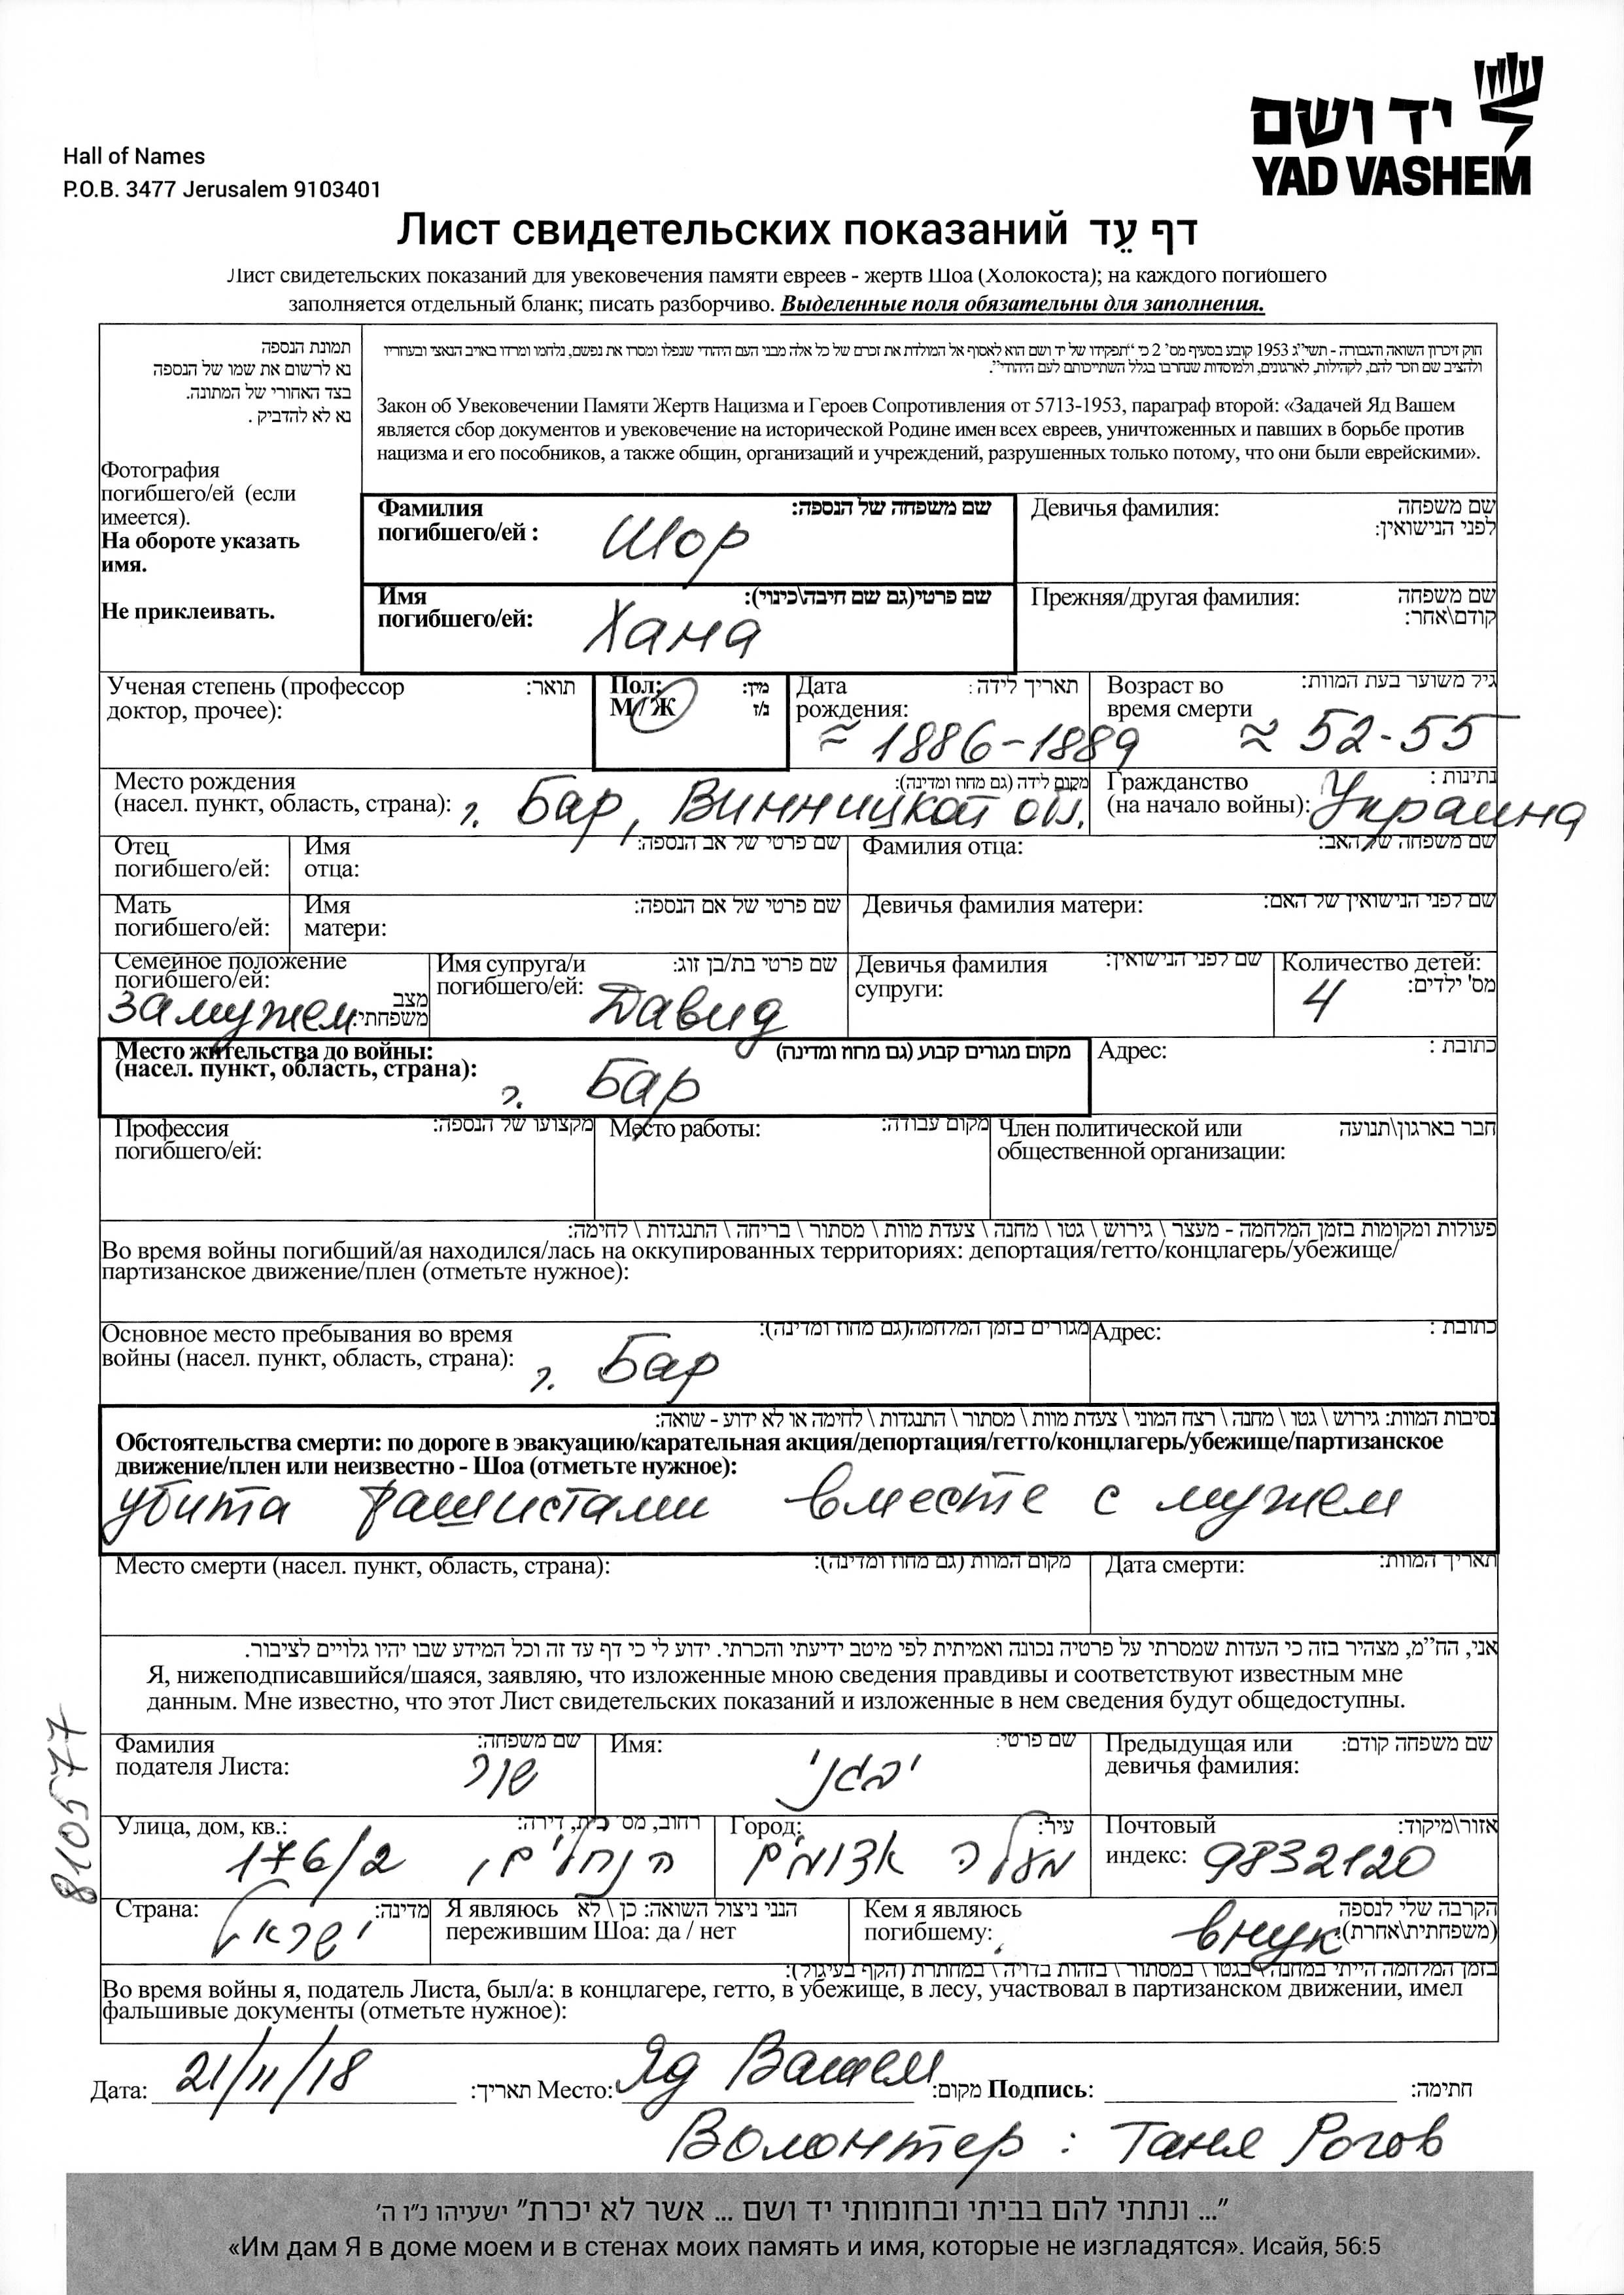 יד ושם
YAD VASHEM
Hall of Names
P.O.B. 3477 Jerusalem 9103401
Лист свидетельских показаний דף עֵד
Лист свидетельских показаний для увековечения памяти евреев - жертв Шоа (Холокоста); на каждого погибшего
заполняется отдельный бланк; писать разборчиво. Выделенные поля обязательны для заполнения.
תמונת הנספה
נא לרשום את שמו של הנספה
בצד האחורי של המתונה.
נא לא להדביק .
Фотография
погибшего/ей (если
имеется).
На обороте указать
имя.
Не приклеивать.
חוק זיכרון השואה והגבורה - תשי"ג 1953 קובע בסעיף מס' 2 כי "תפקידו של יד ושם הוא לאסוף אל המולדת את זכרם של כל אלה מבני העם היהודי שנפלו ומסרו את נפשם, נלחמו ומרדו באויב הנאצי ובעוזריו
ולהציב שם וזכר להם, לקהילות, לארגונים, ולמוסדות שנחרבו בגלל השתייכותם לעם היהודי".
Закон об Увековечении Памяти Жертв Нацизма и Героев Сопротивления от 5713-1953, параграф второй: «Задачей Яд Вашем
является сбор документов и увековечение на исторической Родине имен всех евреев, уничтоженных и павших в борьбе против
нацизма и его пособников, а также общин, организаций и учреждений, разрушенных только потому, что они были еврейскими».
Фамилия погибшего/ей : שם משפחה של הנספה: Шор
Девичья фамилия: שם משפחה לפני הנישואין:
Имя погибшего/ей: שם פרטי(גם שם חיבה\כינוי): Хана
Прежняя/другая фамилия: שם משפחה קודם\אחר:
Ученая степень (профессор доктор, прочее): תואר:
Пол: М/Ж מין: נ/ז
Дата рождения: תאריך לידה: ≈ 1886-1889
Возраст во время смерти גיל משוער בעת המוות: ≈ 52-55
Место рождения (насел. пункт, область, страна): מקום לידה (גם מחוז ומדינה): г. Бар, Винницкой обл.
Гражданство (на начало войны): נתינות : Украина
Отец погибшего/ей: Имя отца: שם פרטי של אב הנספה: Фамилия отца: שם משפחה של האב:
Мать погибшего/ей: Имя матери: שם פרטי של אם הנספה: Девичья фамилия матери: שם לפני הנישואין של האם:
Семейное положение погибшего/ей: מצב משפחתי: замужем
Имя супруга/и погибшего/ей: שם פרטי בת/בן זוג: Давид
Девичья фамилия супруги: שם לפני הנישואין:
Количество детей: מס' ילדים: 4
Место жительства до войны: (насел. пункт, область, страна): מקום מגורים קבוע (גם מחוז ומדינה) г. Бар
Адрес: כתובת :
Профессия погибшего/ей: מקצועו של הנספה:
Место работы: מקום עבודה:
Член политической или общественной организации: חבר בארגון\תנועה
פעולות ומקומות בזמן המלחמה - מעצר \ גירוש \ גטו \ מחנה \ צעדת מוות \ מסתור \ בריחה \ התנגדות \ לחימה:
Во время войны погибший/ая находился/лась на оккупированных территориях: депортация/гетто/концлагерь/убежище/
партизанское движение/плен (отметьте нужное):
Основное место пребывания во время войны (насел. пункт, область, страна): מגורים בזמן המלחמה(גם מחוז ומדינה): г. Бар
Адрес: כתובת :
נסיבות המוות: גירוש \ גטו \ מחנה \ רצח המוני \ צעדת מוות \ מסתור \ התנגדות \ לחימה או לא ידוע - שואה:
Обстоятельства смерти: по дороге в эвакуацию/карательная акция/депортация/гетто/концлагерь/убежище/партизанское
движение/плен или неизвестно - Шоа (отметьте нужное):
убита фашистами вместе с мужем
Место смерти (насел. пункт, область, страна): מקום המוות (גם מחוז ומדינה):
Дата смерти: תאריך המוות:
אני, הח"מ, מצהיר בזה כי העדות שמסרתי על פרטיה נכונה ואמיתית לפי מיטב ידיעתי והכרתי. ידוע לי כי דף עד זה וכל המידע שבו יהיו גלויים לציבור.
Я, нижеподписавшийся/шаяся, заявляю, что изложенные мною сведения правдивы и соответствуют известным мне
данным. Мне известно, что этот Лист свидетельских показаний и изложенные в нем сведения будут общедоступны.
Фамилия подателя Листа: שם משפחה: שור
Имя: שם פרטי: יבגני
Предыдущая или девичья фамилия: שם משפחה קודם:
Улица, дом, кв.: רחוב, מס' בית, דירה: הנחלים, 176/2
Город: עיר: מעלה אדומים
Почтовый индекс: אזור\מיקוד: 9832120
Страна: מדינה: ישראל
Я являюсь пережившим Шоа: да / нет הנני ניצול השואה: כן \ לא
Кем я являюсь погибшему: הקרבה שלי לנספה (משפחתית\אחרת): внук
בזמן המלחמה הייתי במחנה \ בגטו \ במסתור \ בזהות בדויה \ במחתרת (הקף בעיגול):
Во время войны я, податель Листа, был/а: в концлагере, гетто, в убежище, в лесу, участвовал в партизанском движении, имел
фальшивые документы (отметьте нужное):
Дата: 21/11/18 תאריך: Место: Яд Вашем מקום: Подпись: חתימה:
Волонтер : Таня Рогов
810577
"... ונתתי להם בביתי ובחומותי יד ושם ... אשר לא יכרת" ישעיהו נ"ו ה'
«Им дам Я в доме моем и в стенах моих память и имя, которые не изгладятся». Исайя, 56:5